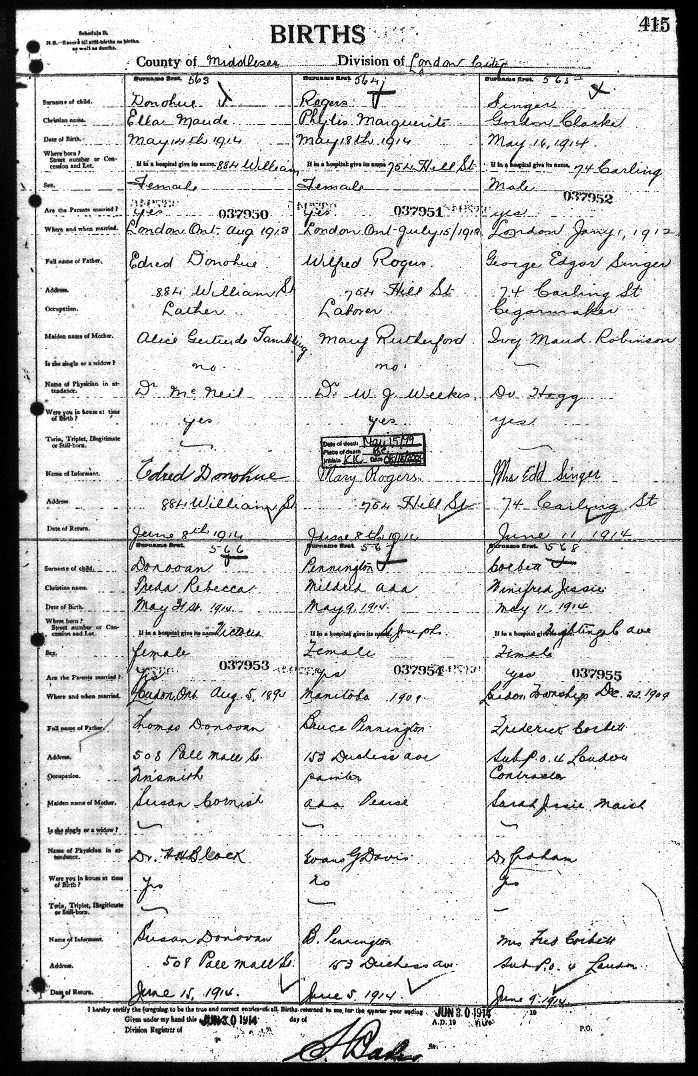 Schedule B.
N.B.—Record all still-births as births, as well as deaths.
BIRTHS
415
County of Middlesex Division of London City
Surname first. 563 Surname first. 564 Surname first. 565
Surname of child. Donohue Rogers Singer
Christian name. Ella Maude Phylis Marguerite Gordon Clarke
Date of Birth. May 14th 1914 May 18th 1914 May 16, 1914
Where born? Street number or Concession and Lot. If in a hospital give its name. 884 William If in a hospital give its name 754 Hill St If in a hospital, give its name. 74 Carling
Sex. Female Female Male
037950 037951 037952
Are the Parents married? yes yes yes
Where and when married. London Ont. Aug 1913 London Ont July 15/191 London Jany 1, 191
Full name of Father. Edred Donohue Wilfred Rogers. George Edgar Singer
Address. 884 William St 754 Hill St 74 Carling St
Occupation. Lather Laborer Cigarmaker
Maiden name of Mother. Alice Gertrude Tambling Mary Rutherford Ivy Maud Robinson
Is she single or a widow? no no
Name of Physician in attendance. Dr McNeil Dr W. J. Weekes. Dr Hogg
Were you in house at time of Birth? yes yes yes
Twin, Triplet, Illegitimate or Still-born.
Date of death: May 15/79
Place of death: B.C.
Initials KK Date
Name of Informant. Edred Donohue Mary Rogers Mrs Edd Singer
Address 884 William St 754 Hill St 74 Carling St
Date of Return. June 8th 1914 June 8th 1914 June 11, 1914
Surname first. 566 Surname first. 567 Surname first. 568
Surname of child. Donovan Pennington Corbett
Christian name. Freda Rebecca Mildred Ada Winifred Jessie
Date of Birth. May 31st. 1914. May 9, 1914 May 11, 1914
Where born? Street number or Concession and Lot. If in a hospital give its name. Victoria If in a hospital give its name. St Josephs If in a hospital give its name. Nightingale ave
Sex. female Female Female
037953 037954 037955
Are the Parents married? yes yes yes
Where and when married. London, Ont. Aug. 5, 189 Manitoba 1909 London Township Dec. 22, 1909
Full name of Father. Thomas Donovan Bruce Pennington Frederick Corbett
Address. 508 Pall Mall St. 153 Duchess ave Sub P.O. 4 London
Occupation. Tinsmith painter Contractor
Maiden name of Mother. Susan Cornish Ada Pearse Sarah Jessie Marsh
Is she single or a widow?
Name of Physician in attendance. Dr. H H Black Evans G Davis Dr Graham
Were you in house at time of Birth? Yes no Yes
Twin, Triplet, Illegitimate or Still-born.
Name of Informant. Susan Donovan B. Pennington Mrs Fred Corbett
Address. 508 Pall Mall St. 153 Duchess ave. Sub P.O. 4 London
Date of Return. June 15, 1914. June 5, 1914 June 9, 1914
I hereby certify the foregoing to be the true and correct entries of all Births returned to me, for the quarter year ending JUN 30 1914 19
Given under my hand this JUN 30 1914 day of A.D. 19
Division Registrar of P.O.